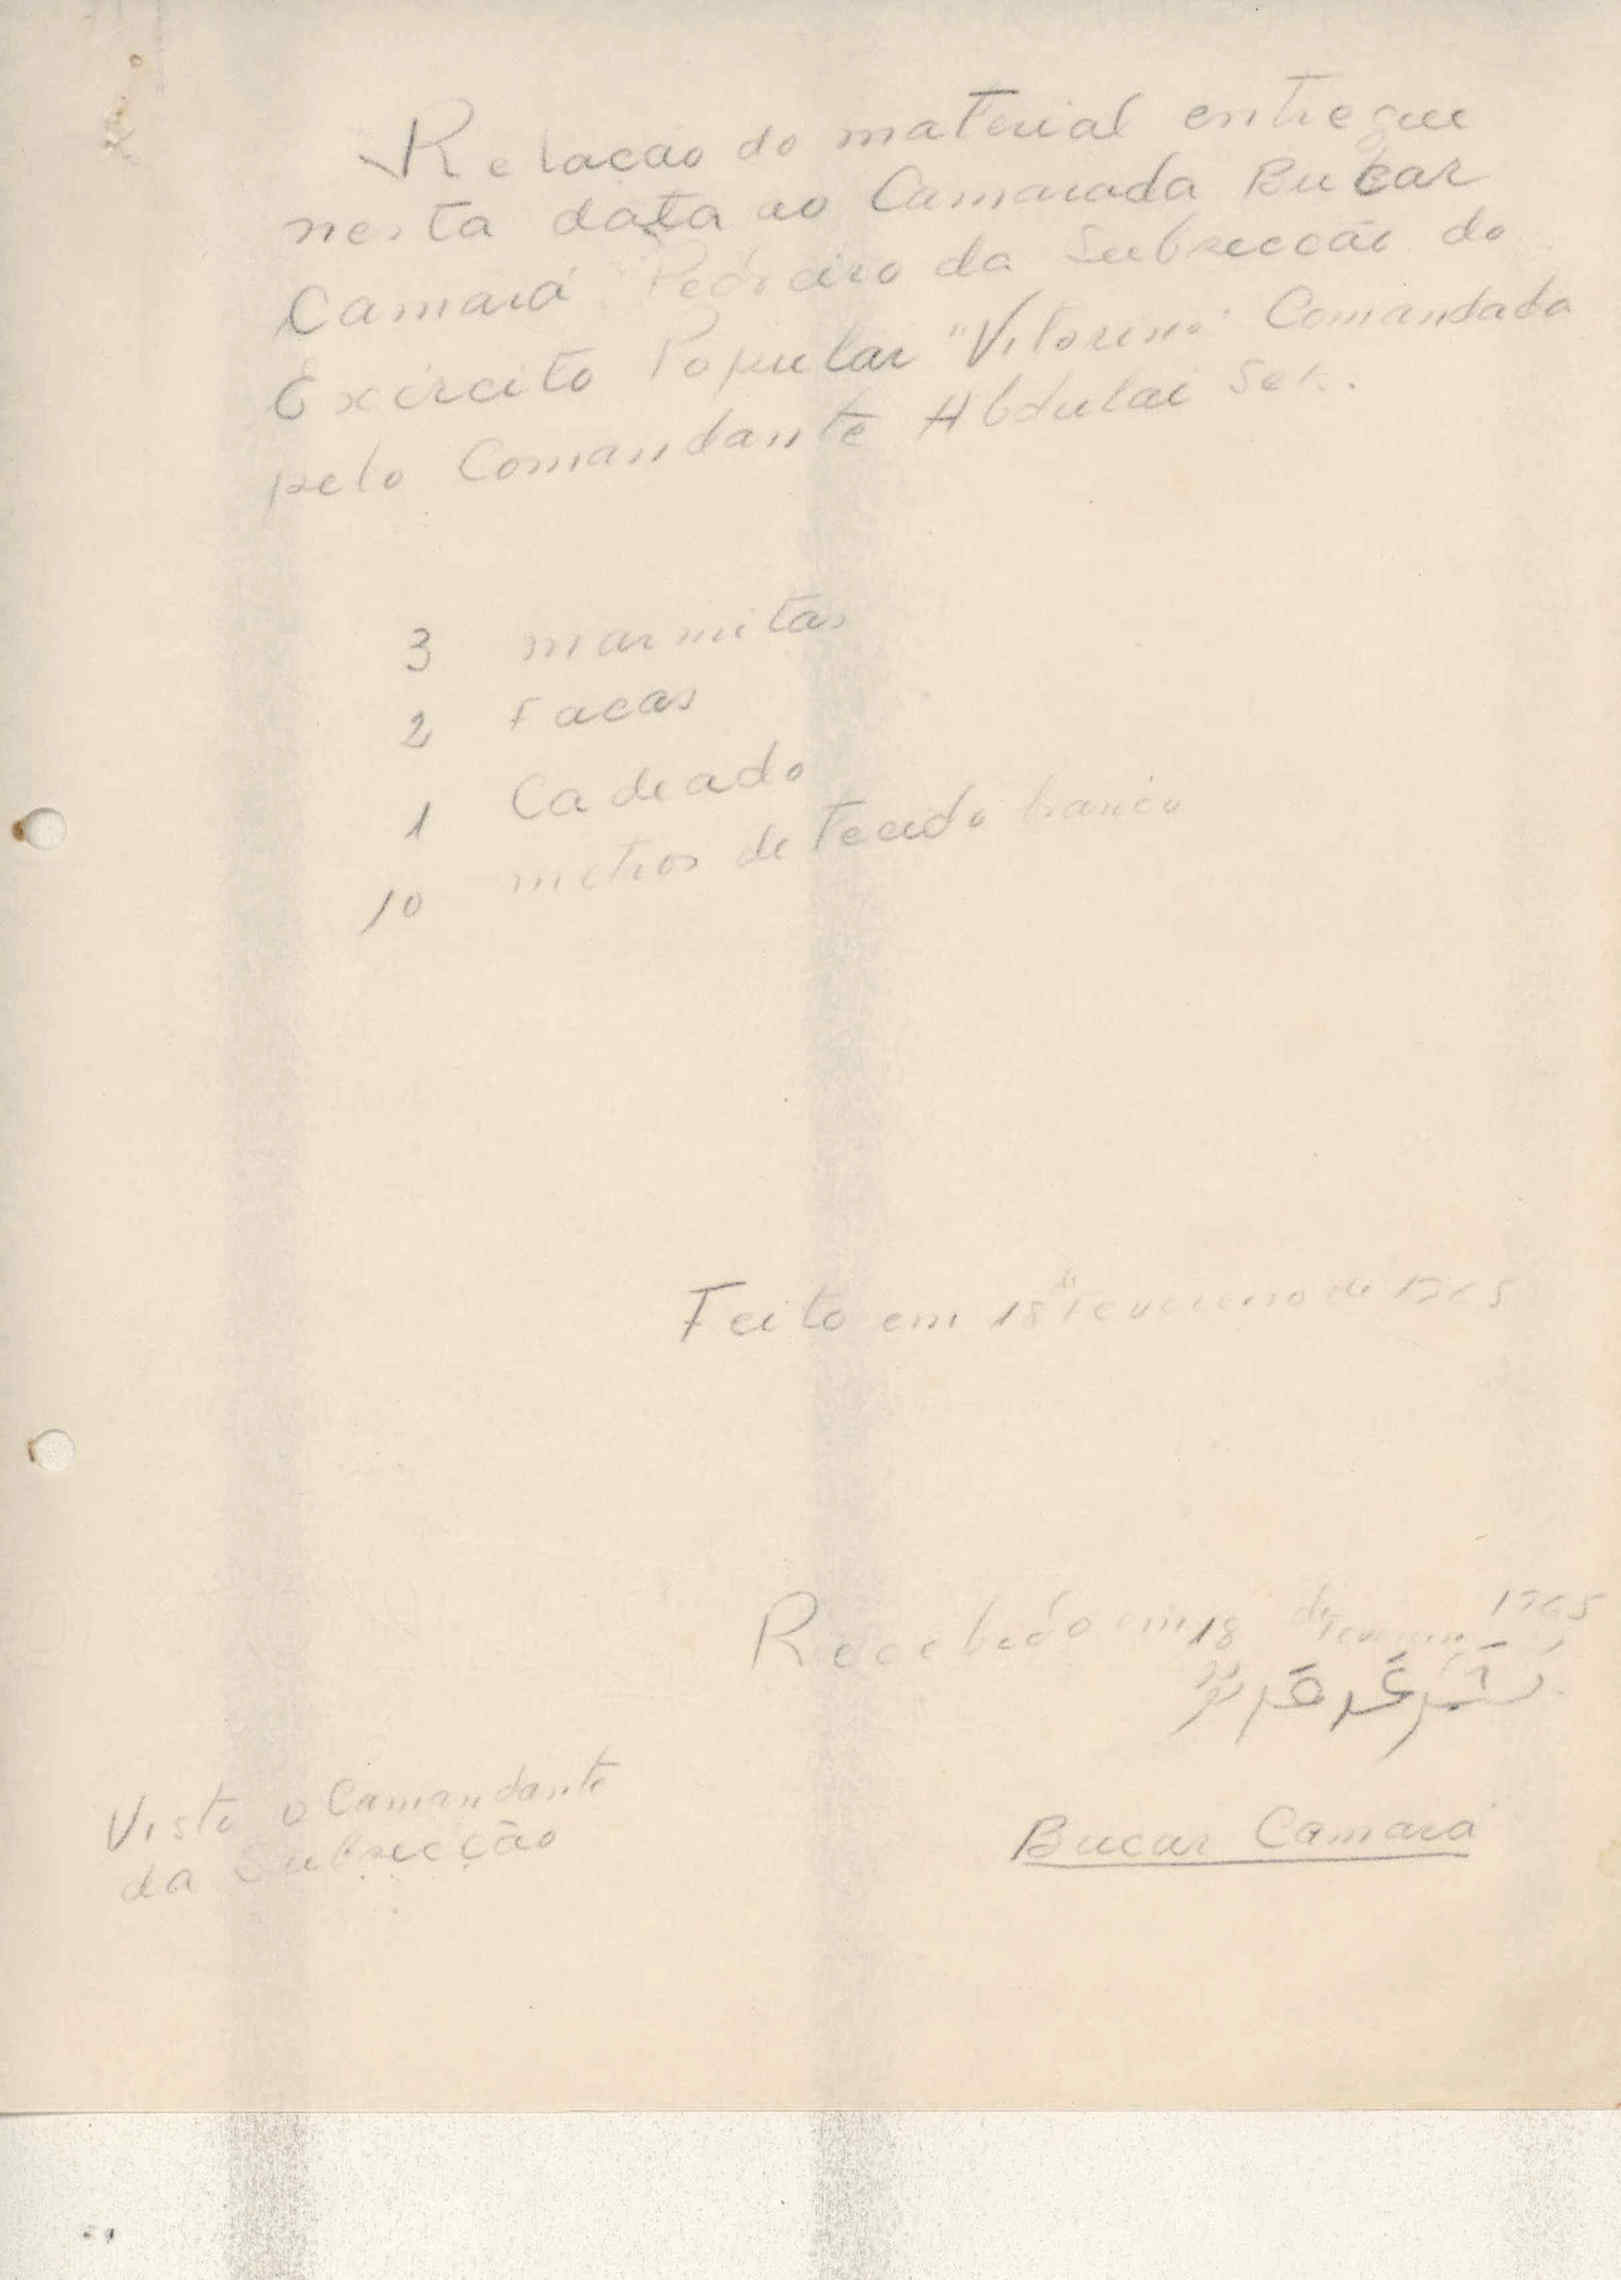 Relação do material entregue
nesta data ao Camarada Bucar
Camará Pedreiro da Subsecção do
Exército Popular "Vitorino" Comandada
pelo Comandante Abdulai
3 marmitas
2 Facas
1 Cadeado
10 metros de tecido branco
Feito em 18 de Fevereiro de 1965
Recebido em 18 de Fevereiro 1965
Bucar Camará
Visto o Comandante
da Subsecção